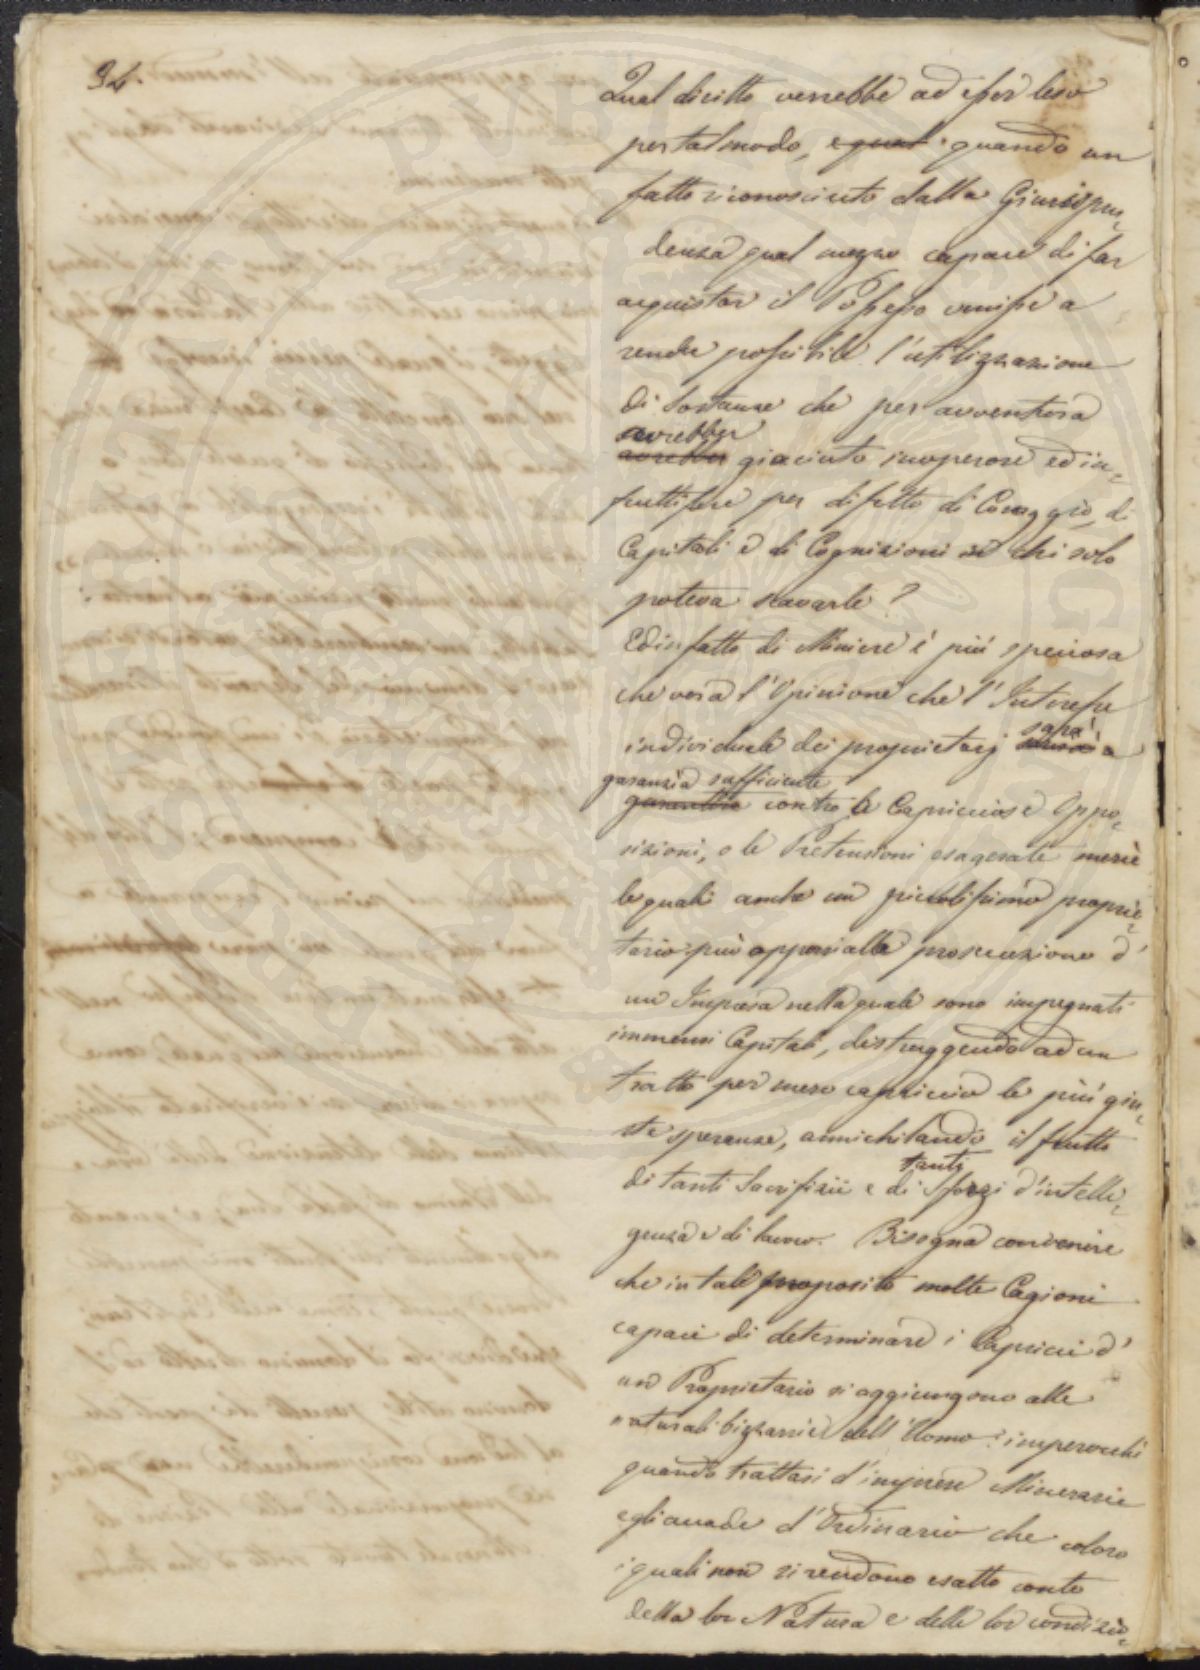 94.
Qual diritto verrebbe ad esser leso
per tal modo, e qual quando un
fatto riconosciuto dalla Giurispru=
denza qual mezzo capace di far
acquistar il Possesso venisse a
render possibile l'utilizzazione
di sostanze che per avventura
avrebber
avrebber giaciuto inoperose ed in=
fruttifere per difetto di Coraggio, di
Capitali e di Cognizioni in chi solo
poteva scavarle?
Ed in fatto di Miniere è più speciosa
che vera l'Opinione che l'Interesse
sarà
individuale dei proprietarj a
garanzia sufficiente
contro le Capricciose Oppo=
sizioni, o le Pretensioni esagerate mercè
le quali anche un piccolissimo proprie=
tario può opporsi alla prosecuzione d'
un Impresa nella quale sono impegnati
immensi Capitali, distruggendo ad un
tratto per mero capriccio le più giu=
ste speranze, annichilando il frutto
tanti
di tanti Sacrifizii e di Sforzi d'intelli=
genza e di lavoro. Bisogna convenire
che in tale proposito molte Cagioni
capaci di determinare i Capricci d'
un Proprietario si aggiungono alle
naturali bizzarrie dell'Uomo: imperocchè
quando trattasi d'imprese Minerarie
egli accade d'Ordinario che coloro
i quali non si rendono esatto conto
della lor Natura e delle lor condizio=